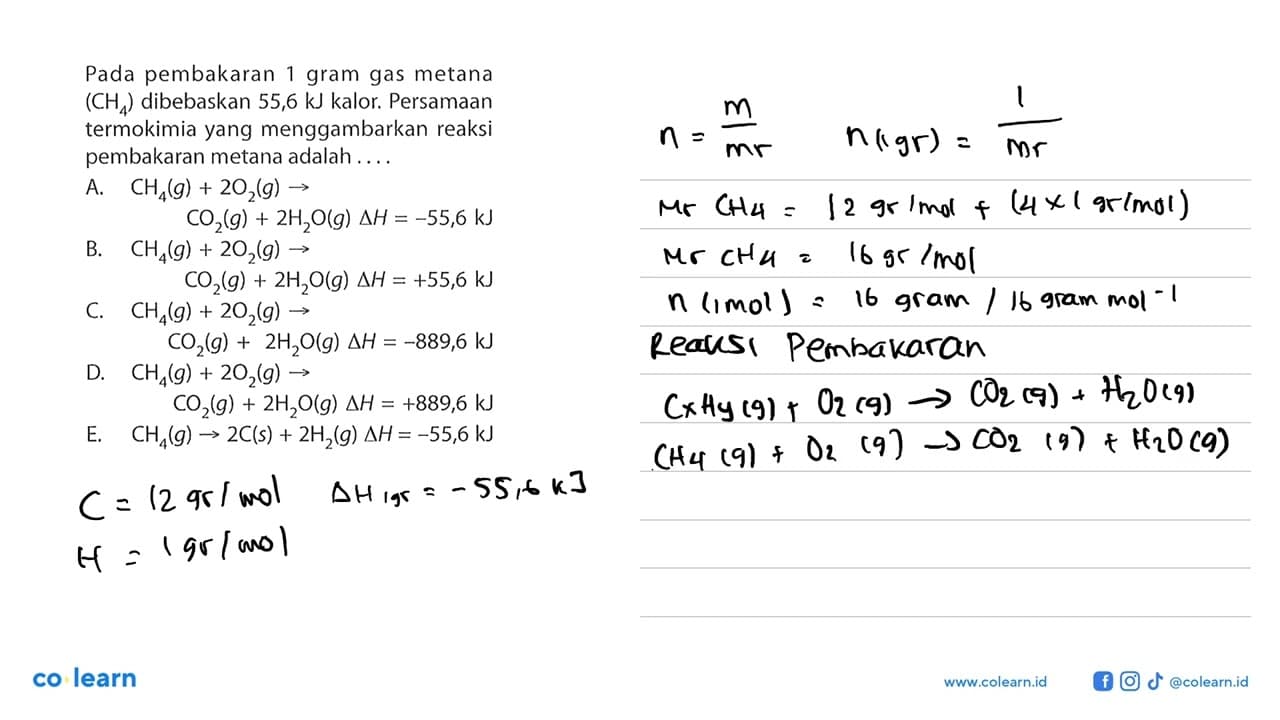 Pada pembakaran 1 gram gas metana
(CH₄) dibebaskan 55,6 kJ kalor. Persamaan
termokimia yang menggambarkan reaksi
pembakaran metana adalah . . . .
A. CH₄(g) + 2O₂(g) →
CO₂(g) + 2H₂O(g) ΔH = –55,6 kJ
B. CH₄(g) + 2O₂(g) →
CO₂(g) + 2H₂O(g) ΔH = +55,6 kJ
C. CH₄(g) + 2O₂(g) →
CO₂(g) + 2H₂O(g) ΔH = –889,6 kJ
D. CH₄(g) + 2O₂(g) →
CO₂(g) + 2H₂O(g) ΔH = +889,6 kJ
E. CH₄(g) → 2C(s) + 2H₂(g) ΔH = –55,6 kJ
C = 12 gr/mol ΔH 1gr = -55,6 kJ
H = 1 gr/mol
n = m/mr n(1gr) = 1/mr
Mr CH4 = 12 gr/mol + (4 x 1 gr/mol)
Mr CH4 = 16 gr/mol
n (1mol) = 16 gram / 16 gram mol⁻¹
Reaksi Pembakaran
CxHy (g) + O2 (g) → CO2 (g) + H2O (g)
CH4 (g) + O2 (g) → CO2 (g) + H2O (g)
co learn
www.colearn.id @colearn.id